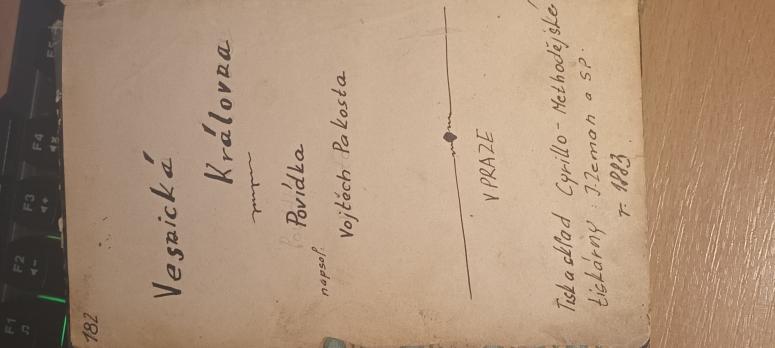 182
Vesnická
Královna
Povídka
napsal
Vojtěch Pakosta
V PRAZE
Tisk a sklad Cyrillo-Methodějské
tiskárny J. Zeman a sp.
r. 1883
F1
F2
F3
F4
F5